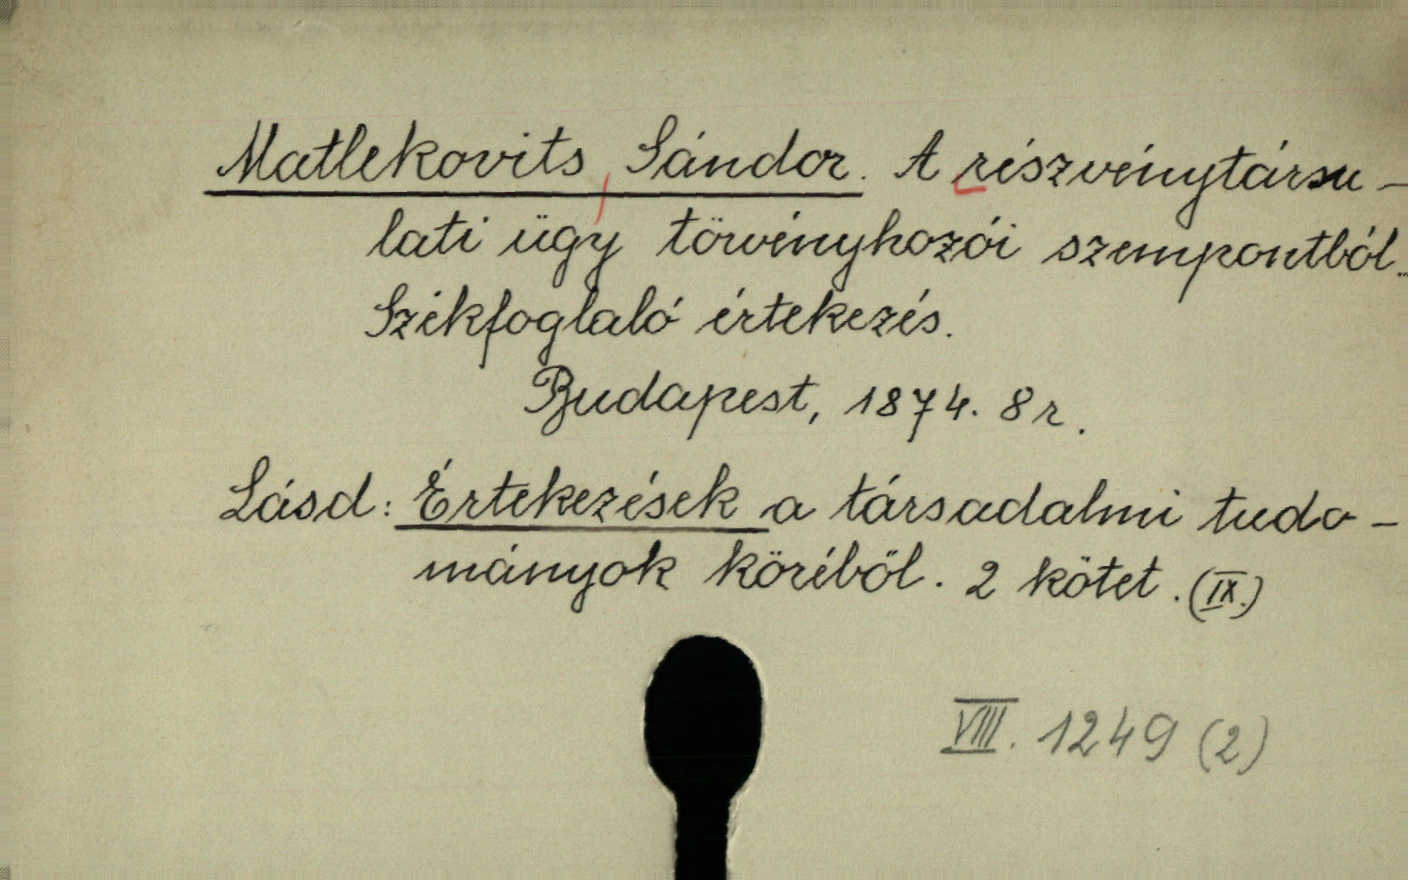 Matlekovits, Sándor. A részvénytársu-
lati ügy törvényhozói szempontból..
Székfoglaló értekezés.
Budapest, 1874. 8 r.
Lásd: Értekezések a társadalmi tudo-
mányok köréből. 2 kötet. (IX.)
VIII. 1249 (2)